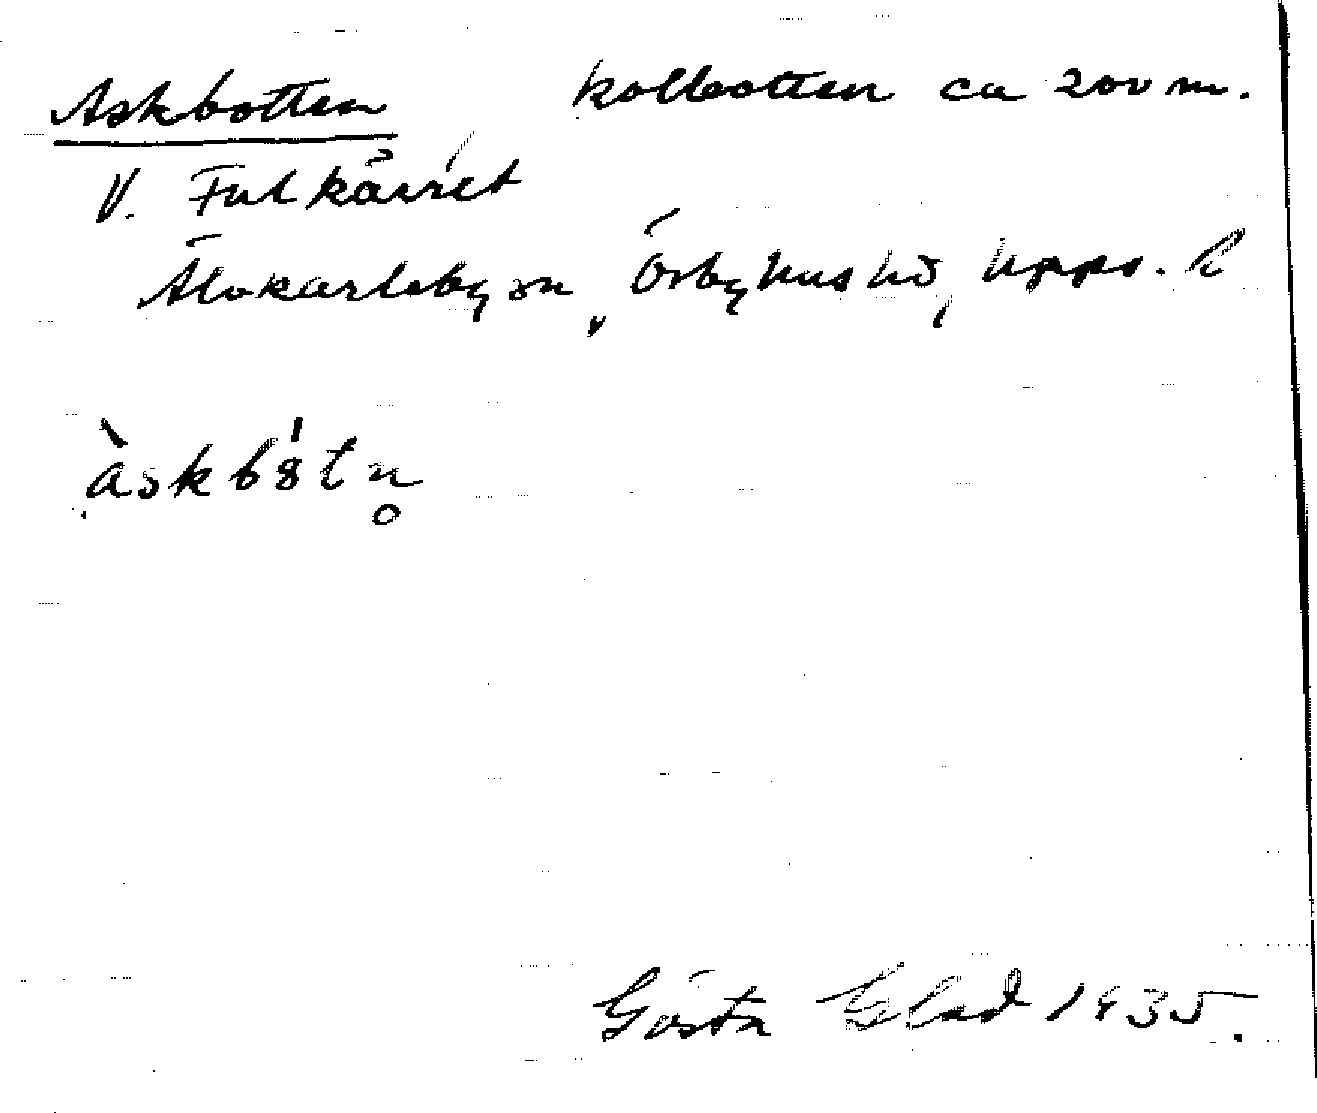 Askbotten kolbotten ca 200 m.
V. Fulkärret
Älvkarleby sn, Örbyhus hd, Upps. l
àskbòtn̥
Gösta Elad 1935.